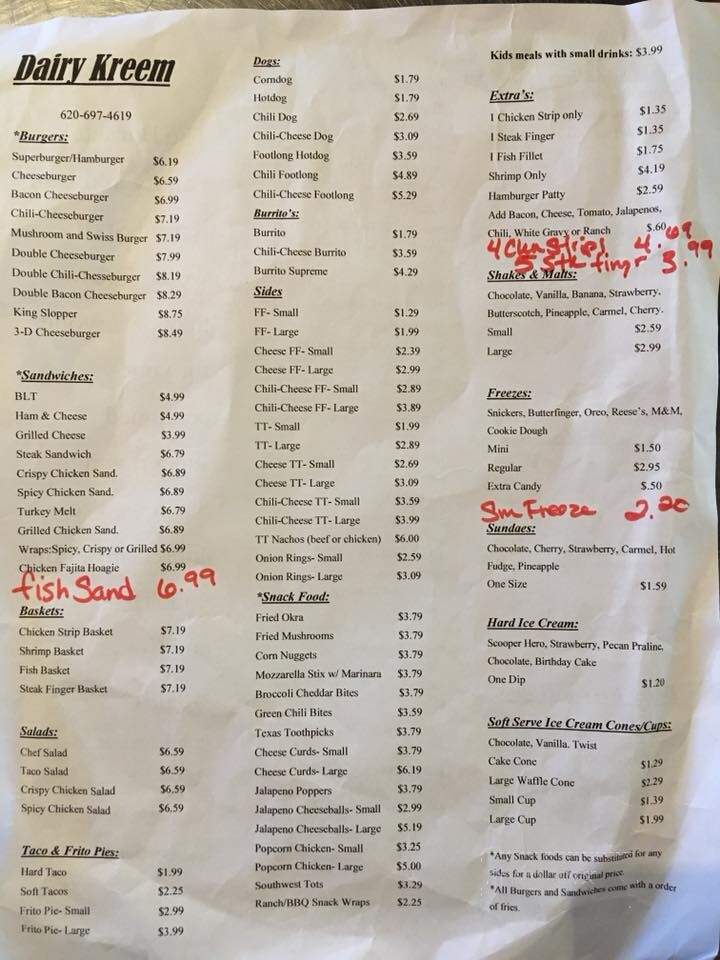 Dairy Kreem
620-697-4619
*Burgers:
Superburger/Hamburger $6.19
Cheeseburger $6.59
Bacon Cheeseburger $6.99
Chili-Cheeseburger $7.19
Mushroom and Swiss Burger $7.19
Double Cheeseburger $7.99
Double Chili-Chesseburger $8.19
Double Bacon Cheeseburger $8.29
King Slopper $8.75
3-D Cheeseburger $8.49
*Sandwiches:
BLT $4.99
Ham & Cheese $4.99
Grilled Cheese $3.99
Steak Sandwich $6.79
Crispy Chicken Sand. $6.89
Spicy Chicken Sand. $6.89
Turkey Melt $6.79
Grilled Chicken Sand. $6.89
Wraps:Spicy, Crispy or Grilled $6.99
Chicken Fajita Hoagie $6.99
fish Sand 6.99
Baskets:
Chicken Strip Basket $7.19
Shrimp Basket $7.19
Fish Basket $7.19
Steak Finger Basket $7.19
Salads:
Chef Salad $6.59
Taco Salad $6.59
Crispy Chicken Salad $6.59
Spicy Chicken Salad $6.59
Taco & Frito Pies:
Hard Taco $1.99
Soft Tacos $2.25
Frito Pie- Small $2.99
Frito Pie- Large $3.99
Dogs:
Corndog $1.79
Hotdog $1.79
Chili Dog $2.69
Chili-Cheese Dog $3.09
Footlong Hotdog $3.59
Chili Footlong $4.89
Chili-Cheese Footlong $5.29
Burrito's:
Burrito $1.79
Chili-Cheese Burrito $3.59
Burrito Supreme $4.29
Sides
FF- Small $1.29
FF- Large $1.99
Cheese FF- Small $2.39
Cheese FF- Large $2.99
Chili-Cheese FF- Small $2.89
Chili-Cheese FF- Large $3.89
TT- Small $1.99
TT- Large $2.89
Cheese TT- Small $2.69
Cheese TT- Large $3.09
Chili-Cheese TT- Small $3.59
Chili-Cheese TT- Large $3.99
TT Nachos (beef or chicken) $6.00
Onion Rings- Small $2.59
Onion Rings- Large $3.09
*Snack Food:
Fried Okra $3.79
Fried Mushrooms $3.79
Corn Nuggets $3.79
Mozzarella Stix w/ Marinara $3.79
Broccoli Cheddar Bites $3.79
Green Chili Bites $3.59
Texas Toothpicks $3.79
Cheese Curds- Small $3.79
Cheese Curds- Large $6.19
Jalapeno Poppers $3.79
Jalapeno Cheeseballs- Small $2.99
Jalapeno Cheeseballs- Large $5.19
Popcorn Chicken- Small $3.25
Popcorn Chicken- Large $5.00
Southwest Tots $3.29
Ranch/BBQ Snack Wraps $2.25
Kids meals with small drinks: $3.99
Extra's:
1 Chicken Strip only $1.35
1 Steak Finger $1.35
1 Fish Fillet $1.75
Shrimp Only $4.19
Hamburger Patty $2.59
Add Bacon, Cheese, Tomato, Jalapenos,
Chili, White Gravy or Ranch $.60
4 Ckn Strips 4.69
5 Stk fingr 3.99
Shakes & Malts:
Chocolate, Vanilla, Banana, Strawberry,
Butterscotch, Pineapple, Carmel, Cherry.
Small $2.59
Large $2.99
Freezes:
Snickers, Butterfinger, Oreo, Reese's, M&M,
Cookie Dough
Mini $1.50
Regular $2.95
Extra Candy $.50
Sm Freeze 2.20
Sundaes:
Chocolate, Cherry, Strawberry, Carmel, Hot
Fudge, Pineapple
One Size $1.59
Hard Ice Cream:
Scooper Hero, Strawberry, Pecan Praline,
Chocolate, Birthday Cake
One Dip $1.20
Soft Serve Ice Cream Cones/Cups:
Chocolate, Vanilla. Twist
Cake Cone $1.29
Large Waffle Cone $2.29
Small Cup $1.39
Large Cup $1.99
*Any Snack foods can be substituted for any
sides for a dollar off original price.
*All Burgers and Sandwiches come with a order
of fries.